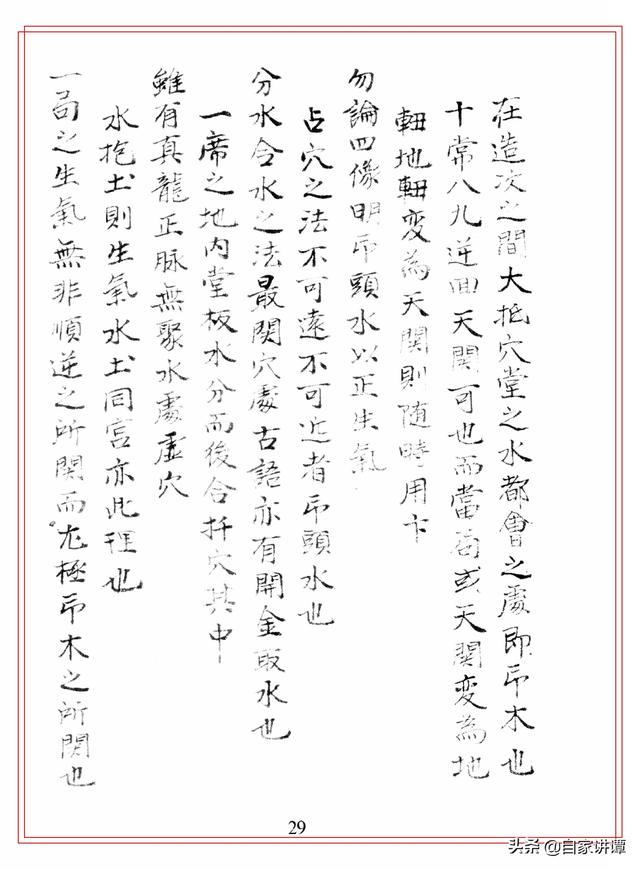 在造次之間大抵穴堂之水都會之處即吊木也
十常八九逆回天関可也而當局或天関変為地
軸地軸変為天関則随時用卞
勿論四像明吊頭水以正生氣
占穴之法不可遠不可近者吊頭水也
分水合水之法最関穴處古語亦有開金取水也
一席之地内堂板水分而後合扦穴其中
雖有真龍正脉無聚水處虛穴
水抱土則生氣水土同宮亦此理也
一局之生氣無非順逆之所関而尤極吊木之所関也
29
头条 @自家讲谭